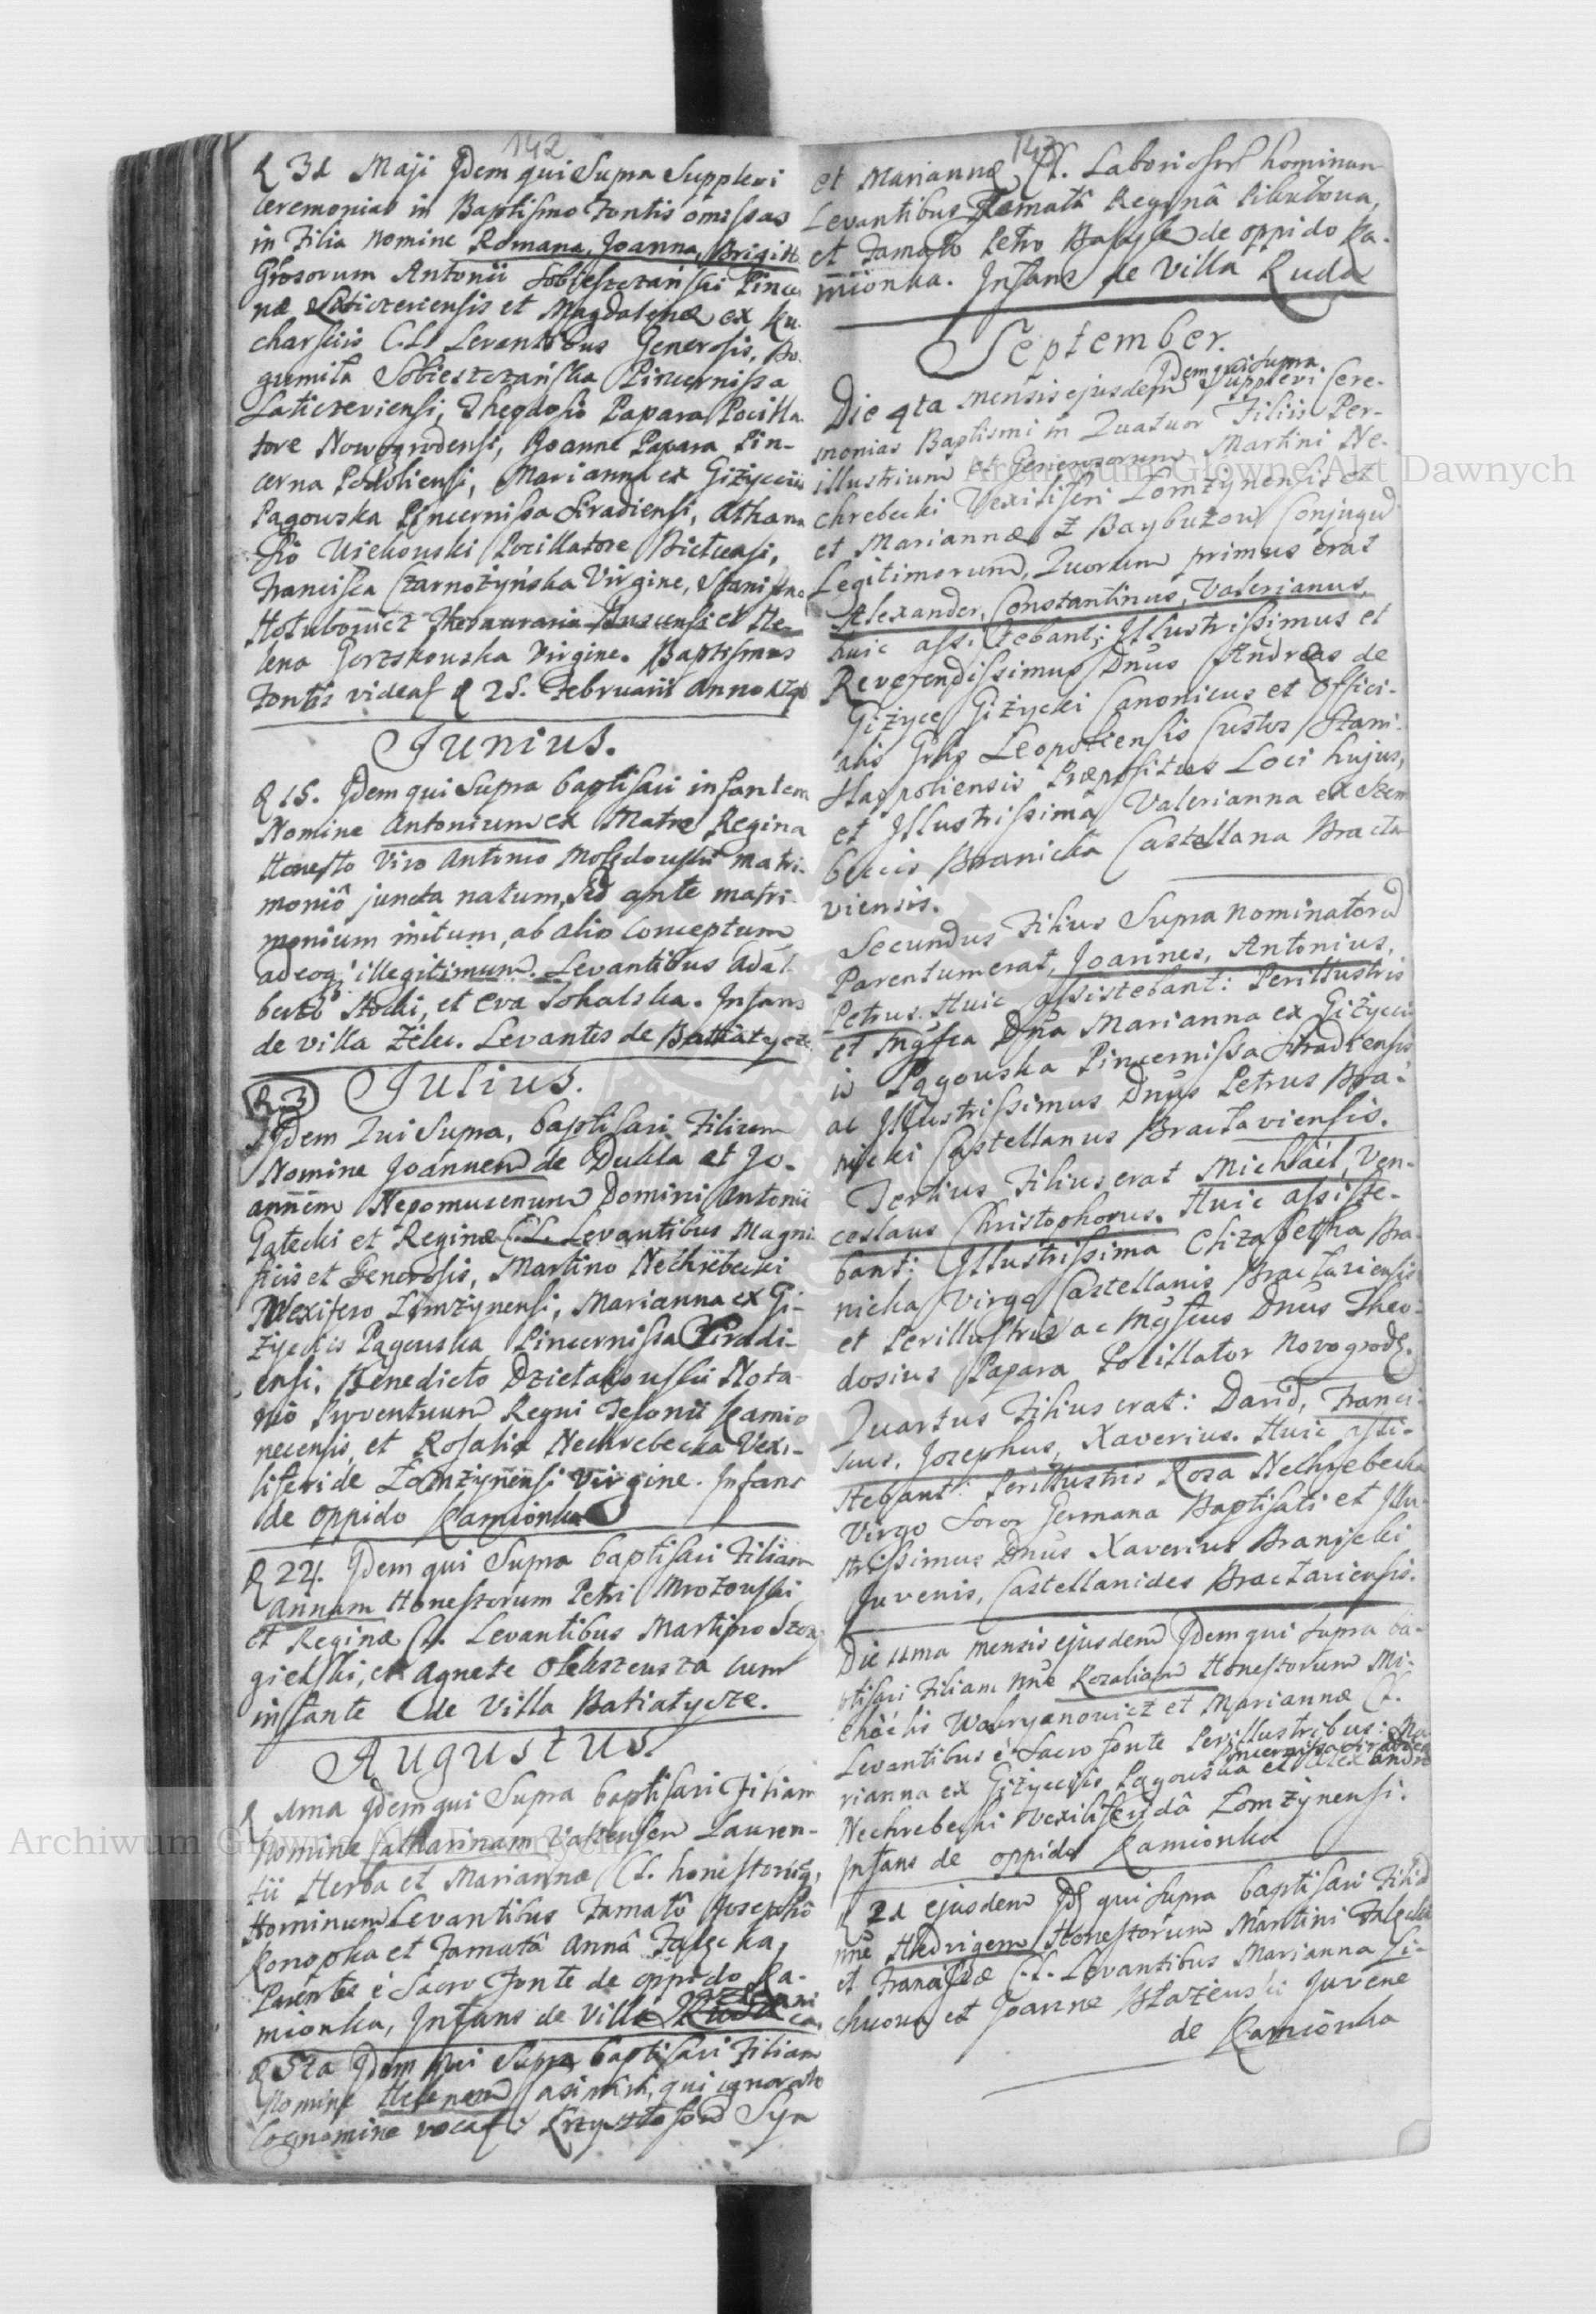 142
D 31 Maji Idem qui Supra Supplevi
ceremonias in Baptismo Fontis omissas
in Filia nomine Romana, Joanna, Brigitta
Grosorum Antonii Sobieszczański Pincer
næ Laticzeviensis et Magdalenæ ex Ku-
charskiis C.L. Levantibus Generosis, Bo-
gumila Sobieszczańska Pincernissa
Laticzeviensi, Theodosio Papara Pocilla-
tore Nowogrodensi, Joanne Papara Pin-
cerna Podoliensi, Marianna ex Giżycciis
Pągowska Pincernissa Siradiensi, Athana
sio Pocillatore
Francisca Czarnożyńska Virgine, Stanislao
Hołubowicz Thesaurario Buscensi et He-
lena Gorzskowska Virgine. Baptismus
Fontis videas D 25. Februarii Anno
Junius.
D 15. Idem qui Supra baptisavi infantem
Nomine Antonium ex Matre Regina
Honesto Viro Antonio matri-
moniô juncta natum, sed ante matri-
monium initum, ab alio conceptum
adeoq; illegitimum. Levantibus Adal-
berto et Eva Sokalska. Infans
de villa Żelec. Levantes de Batiatycze
Julius.
D. 3
Idem Qui Supra, baptisavi Filium
Nomine Joannem de Dukla et Jo-
annem Nepomucenum Domini Antonii
Gałecki et Reginæ C.L. Levantibus Magni-
ficis et Generosis, Martino Nechrebecki
Vexifero Łomżynensi, Marianna ex Gi-
życciis Pągowska Pincernissa Siradi-
ensi, Benedicto Dzietakowski Nota-
rio Proventuum Regni Telonii Kamio
necensis, et Rosalia Nechrebecka Vexi-
liferide Łomżynensi Virgine. Infans
de oppido Kamionka
D 22. Idem qui Supra baptisavi Filiam
Annam Honestorum Petri Mrozowski
et Reginæ C.L. Levantibus Martino
et Agnete cum
infante de Villa Batiatycze.
Augustus.
D 1ma Idem qui Supra baptisavi Filiam
Nomine Catharinam Lauren-
tii Herba et Mariannæ C.L. honestorum
Hominum Levantibus Famatô Josephô
Konopka et Famatâ Annâ
è Sacro Fonte de oppido Ka-
mionka, Infans de villa
D 5ta Idem qui Supra baptisavi Filiam
Nomine Helenam Casimiri, qui ignorato
Cognomine vocat: Krzysztofow Syn
143
et Mariannæ C.L. Laboriosor hominum
Levantibus Famatâ Reginâ
et Famato Petro de oppido Ka-
mionka. Infans de Villa Ruda
September.
Idem qui Supra
Die 4ta mensis ejusdem Supplevi Cere-
monias Baptismi in Quatuor Filiis Per-
illustrium et Generosorum Martini Ne-
chrebecki Vexiliferi Łomżynensis et
et Mariannæ z Baybuzow Conjugum
Legitimorum, Quorum primus erat
Alexander, Constantinus, Valerianus,
huic assistebant; Illustrissimus et
Reverendissimus Dnus Andreas de
Giżyce Giżycki Canonicus et Offici-
alis Grlis Leopoliensis Custos Stani-
slaopoliensis Præpositus Loci hujus,
et Illustrissima Valerianna ex Szem
beccis Branicka Castellana Bracla
viensis.
Secundus Filius Supra nominatorum
Parentum erat, Joannes, Antonius,
Petrus. Huic assistebant: Perillustris
et Mgfca Dna Marianna ex Giżycci
is Pągowska Pincernissa Siradiensis
ac Illustrissimus Dnus Petrus Bra-
nicki Castellanus Braclaviensis.
Tertius Filius erat Michael, Ven-
ceslaus Christophorus. Huic assiste-
bant: Illustrissima Elizabetha Bra-
nicka Virgo Castellanis Braclaviensis
et Perillustris ac Mgfcus Dnus Theo-
dosius Papara Pocillator Novogrod.
Quartus Filius erat: David, Franci-
scus, Josephus, Xaverius. Huic assi-
stebant: Perillustris Roza Nechrebecka
Virgo Soror Germana Baptisati et Illu-
strissimus Dnus Xaverius Branicki
Juvenis, Castellanides Braclaviensis.
Die 11ma mensis ejusdem Idem qui Supra ba-
ptisavi Filiam nne Rozaliam Honestorum Mi-
chaëlis Wawryanowicz et Mariannæ C.L.
Levantibus è Sacro fonte Perillustribus: Ma-
Pincernissa Siradien
rianna ex Giżycciis Pągowska et Alexandro
Nechrebecki Vexiliferidâ Łomżynensi.
Infans de oppido Kamionka
D 21 ejusdem Id qui Supra baptisavi Filiam
nne Hedvigem Honestorum Martini
et Franciscæ C.L. Levantibus Marianna Li-
chuowa et Joanne Błażewski Juvene
de Kamionka
Archiwum Główne Akt Dawnych
Archiwum Główne Akt Dawnych